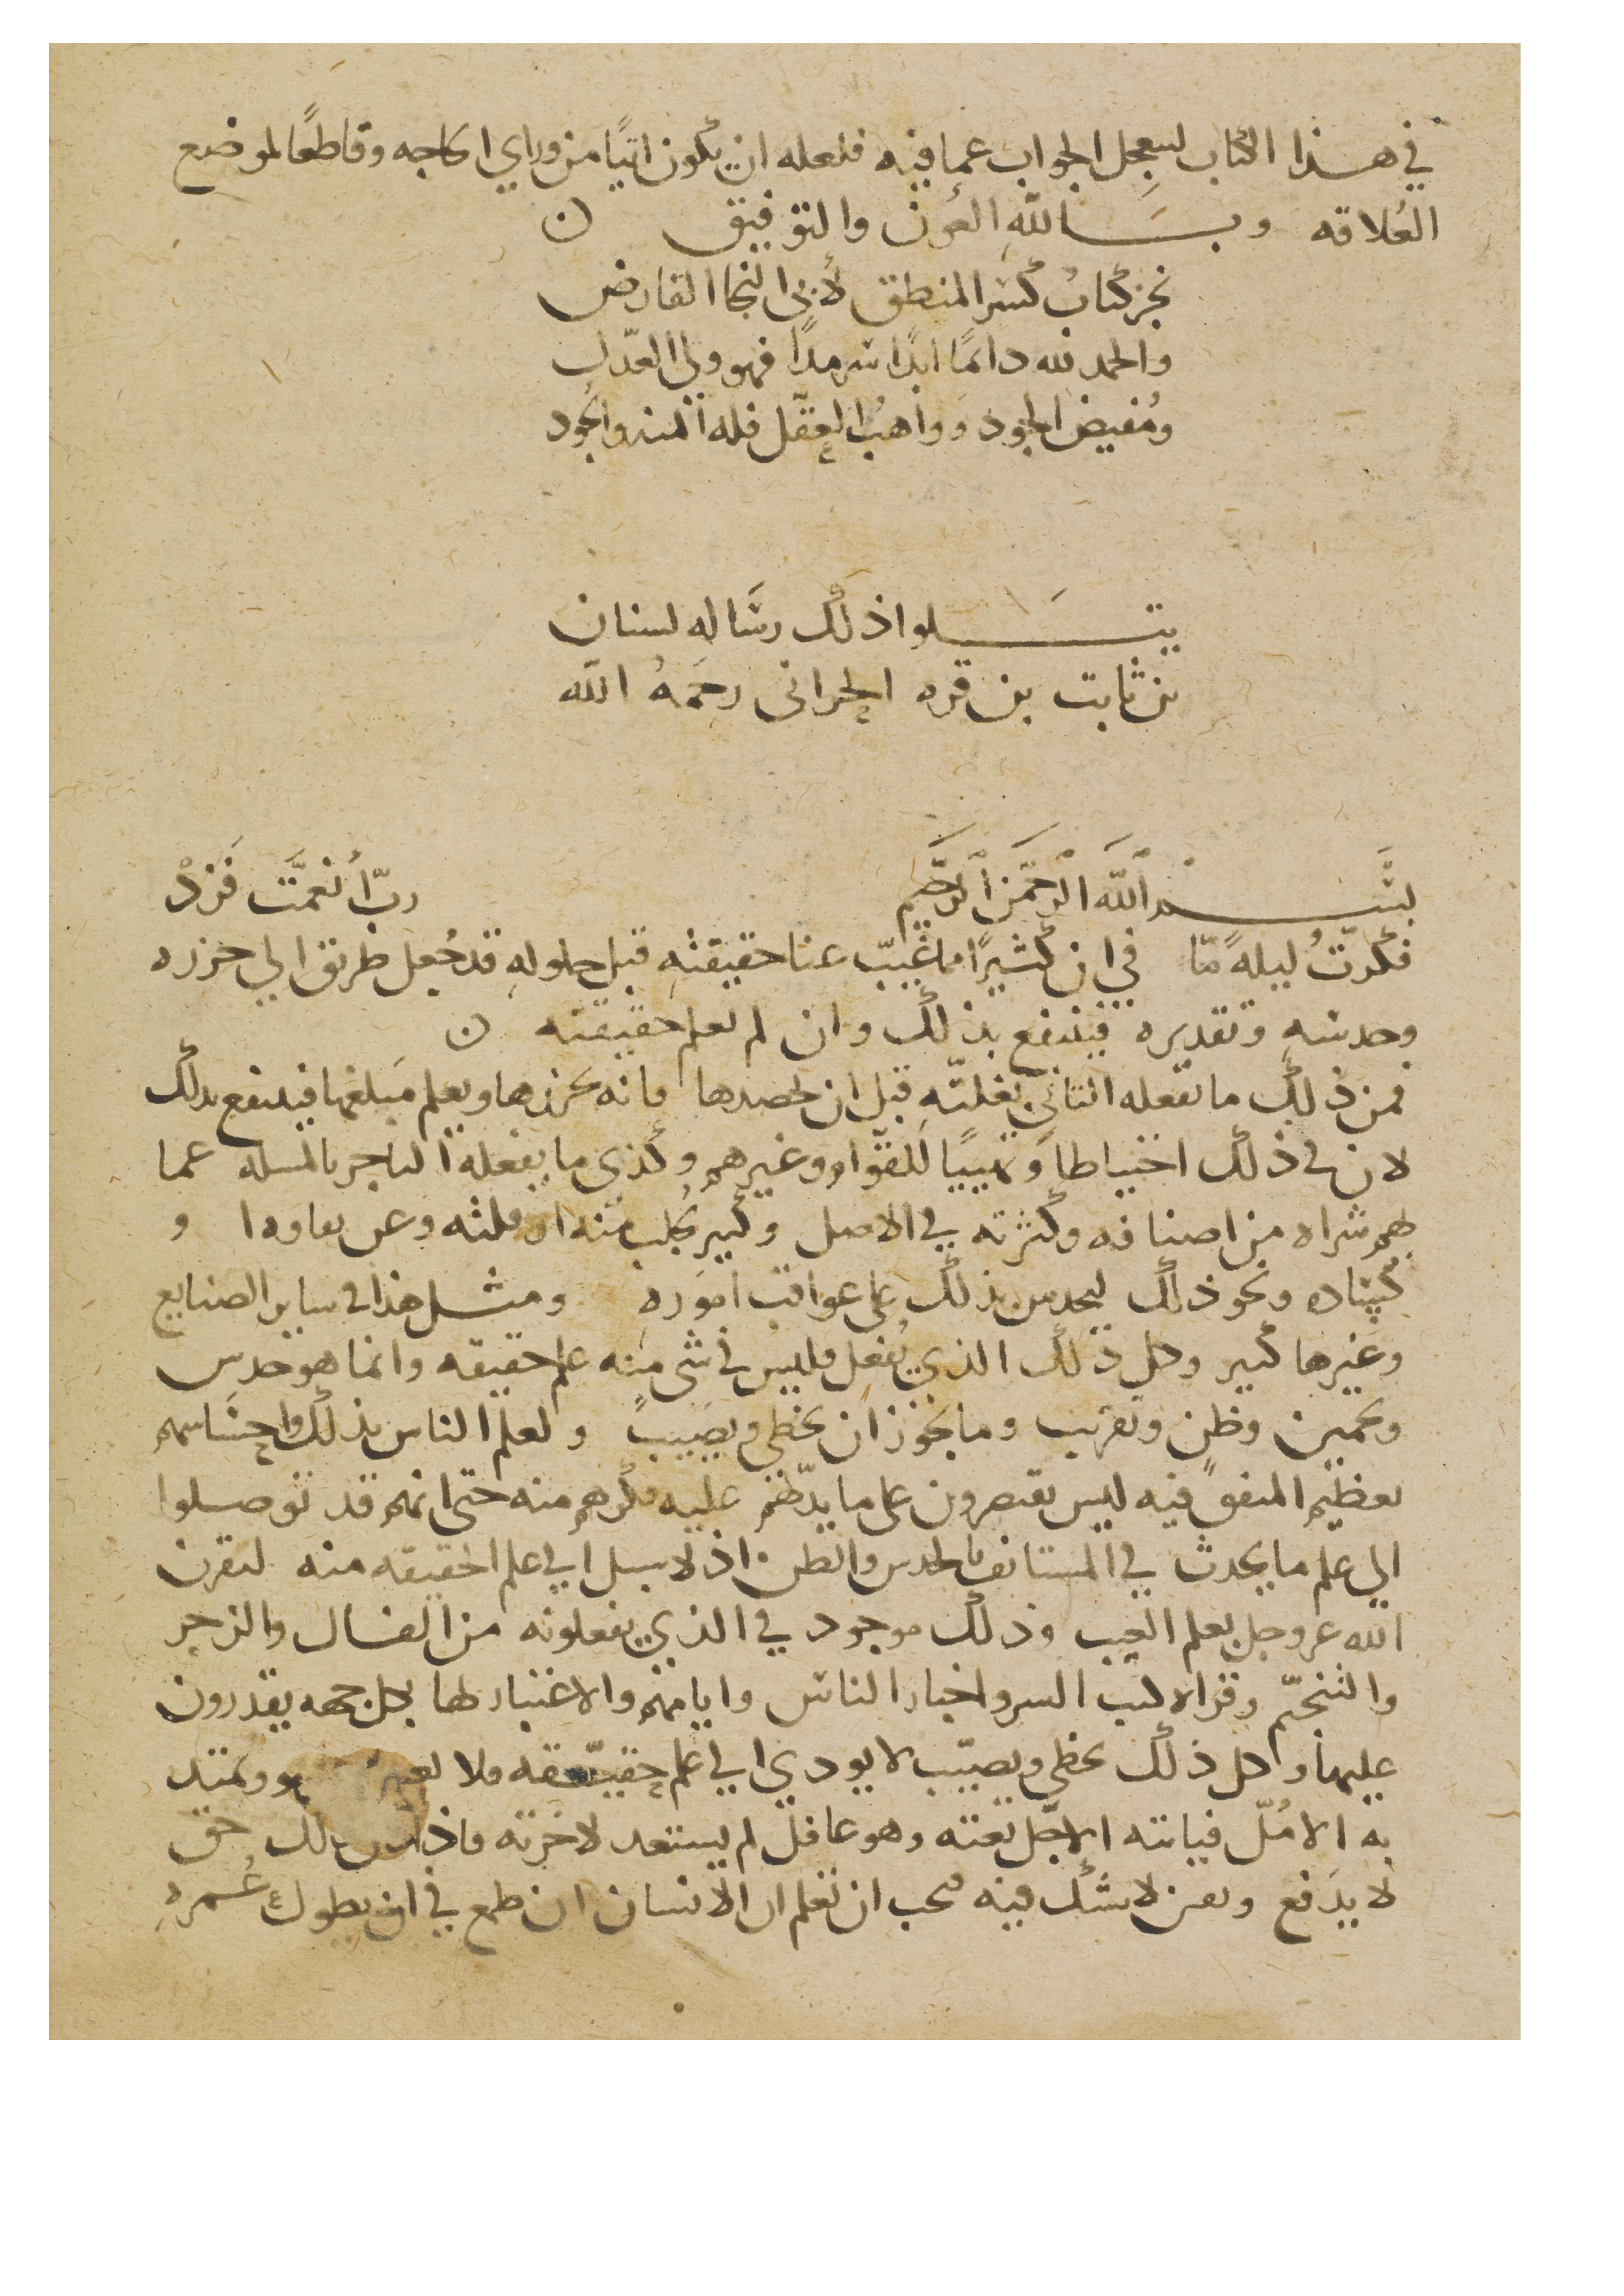 في هذا الكتاب ليعجل الجواب عما فيه فلعله ان يكون اتيًا من وراي الحاجه وقاطعًا لموضع
العُلاقه وبالله العون والتوفيق ن
نجز كتابُ كسر المنطق لأبي النجا الفارض
والحمد لله دائمًا ابدًا سرمدًا فهو ولي العدل
ومُفيض الجود وواهبُ العقل فله المنه والجود
يتلوا ذلك رسالة لسنان
بن ثابت بن قره الحراني رحمهُ الله
بسم الله الرحمن الرحيم ربّ أنعمت فزدْ
فكرتُ ليلةً مّا في ان كثيرًا ما غيب عنا حقيقته قبل حلوله قد جُعل طريق الي حزره
وحدسه وتقديره فينتفع بذلك وان لم تعلم حقيقته ن
فمن ذلك ما تفعله بغلته قبل ان يحصدها فانه يحزرها ويعلم مبلغها فينتفع بذلك
لان في ذلك احتياطا وغيرهم وكذي ما يفعله التاجر بالمسله عما
شراه من اصنافه وكثرته في الاصل منه او قلته وعن
كساده ونحو ذلك ليحدس بذلك على عواقب اموره ومثل هذا في ساير الصنايع
وغيرها كثير وكل ذلك الذي يُفعل فليس في شي منه علم حقيقه وانما هو حدس
وتخمين وظن وتقريب وما يجوز ان يخطي ويصيب ولعلم الناس بذلك
بعظيم فيه ليس يقتصرون على ما عليه فكرهم منه حتى انهم قد توصلوا
الي علم ما يحدث في المستانف بالحدس والظن اذ لا سبيل الي علم الحقيقه منه
الله عز وجل بعلم الغيب وذلك موجود في الذي يفعلونه من الفال والزجر
والتنجيم وقراه كتب السير واخبار الناس وايامهم والاعتبار لها بكل جهه يقدرون
عليها وكل ذلك يخطي ويصيب لا يودي الي علم حقيقه فلا
به الامل فياتيه الاجل بغته وهو غافل لم يستعد لاخرته حق
لا يدفع لا شك فيه يجب ان تعلم ان الانسان ان طمع في ان يطول عُمره